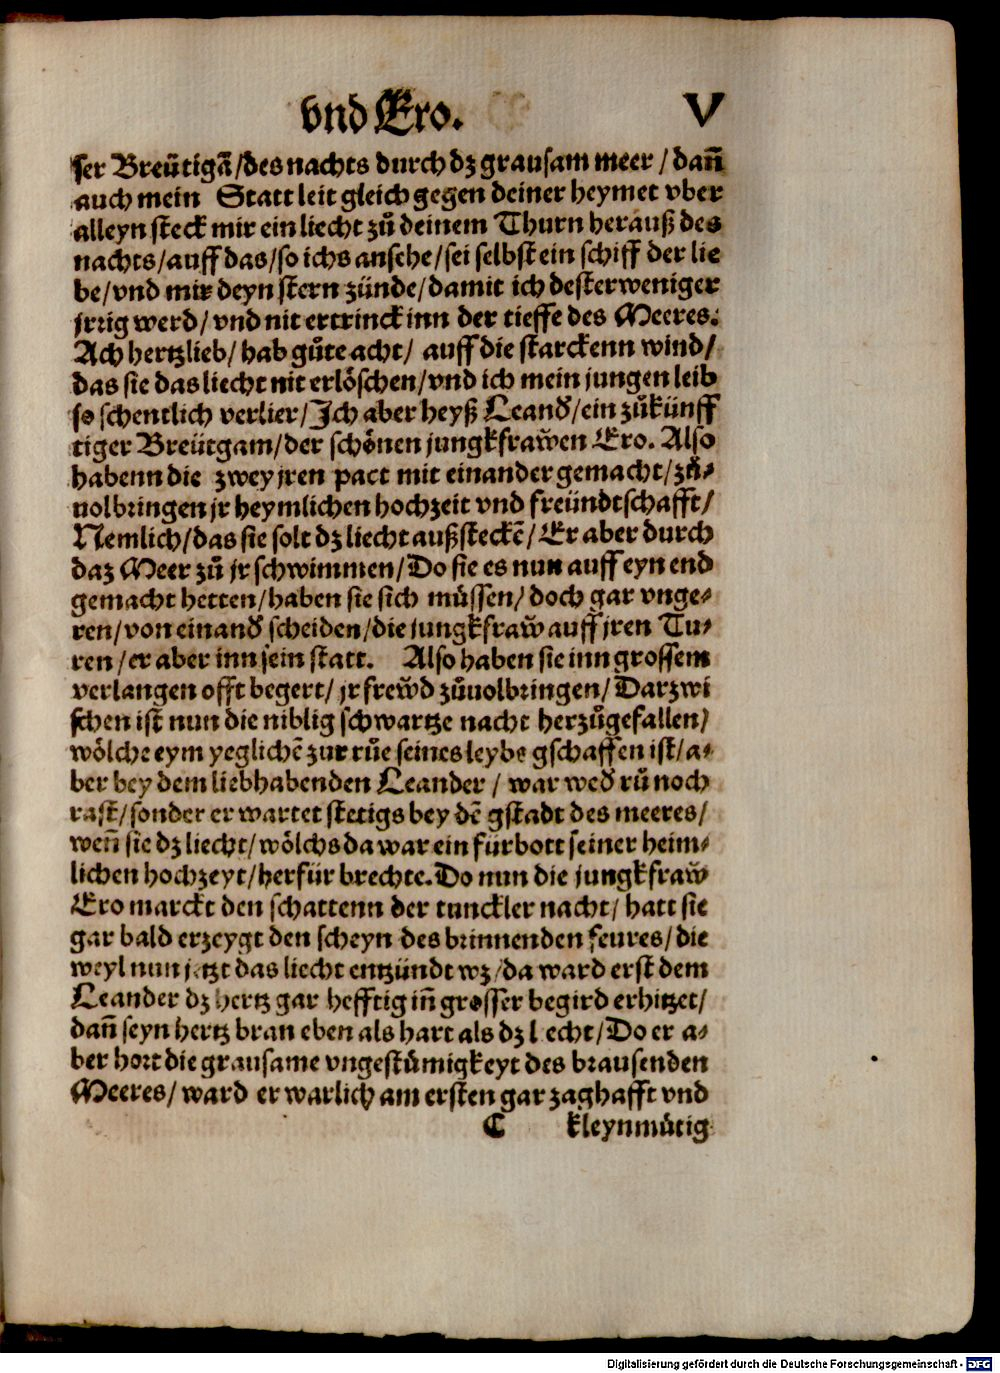 vnd Ero. V
ser Breütigã/des nachts durch dz grausam meer/dañ
auch mein Statt leit gleich gegen deiner heymet vber
alleyn steck mir ein liecht zů deinem Thurn herauß des
nachts/auff das/so ichs ansehe/sei selbst ein schiff der lie
be/vnd mir deyn stern zünde/damit ich desterweniger
jrrig werd/vnd nit ertrinck inn der tieffe des Meeres.
Ach hertzlieb/hab gůte acht/ auff die starckenn wind/
das sie das liecht nit erlöschen/vnd ich mein jungen leib
so schentlich verlier/Ich aber heyß Leand̕/ein zůkünff
tiger Breütgam/der schönen jungkfraw̃en Ero. Also
habenn die zwey jren pact mit einander gemacht/zů⸗
uolbringen jr heymlichen hochzeit vnd freündtschafft/
Nemlich/das sie solt dz liecht außsteckẽ/Er aber durch
daz Meer zů jr schwimmen/Do sie es nun auff eyn end
gemacht hetten/haben sie sich müssen/doch gar vnge⸗
ren/von einand̕ scheiden/die jungkfraw̃ auff jren Tu⸗
ren/er aber inn sein statt. Also haben sie inn grossem
verlangen offt begert/jr frew̃d zůuolbringen/Darzwi
schen ist nun die niblig schwartze nacht herzůgefallen/
wölche eym yeglichẽ zur růe seines leybs gschaffen ist/a⸗
ber bey dem liebhabenden Leander/ war wed̕ rů noch
rast/sonder er wartet stetigs bey dẽ gstadt des meeres/
weñ sie dz liecht/wölchs da war ein fürbott seiner heim⸗
lichen hochzeyt/herfür brechte. Do nun die jungkfraw̃
Ero marckt den schattenn der tunckler nacht/hatt sie
gar bald erzeygt den scheyn des brinnenden feures/die
weyl nun jetzt das liecht entzündt wz/da ward erst dem
Leander dz hertz gar hefftig iñ grosser begird erhitzet/
dañ seyn hertz bran eben als hart als dz l echt/Do er a⸗
ber hort die grausame vngestümigkeyt des brausenden
Meeres/ward er warlich am ersten gar zaghafft vnd
C kleynmütig
Digitalisierung gefördert durch die Deutsche Forschungsgemeinschaft - DFG